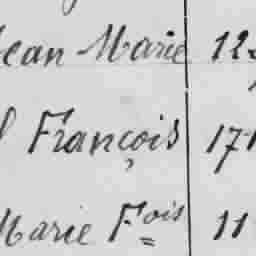 Jean Marie 12
François 171
Marie Fois 11